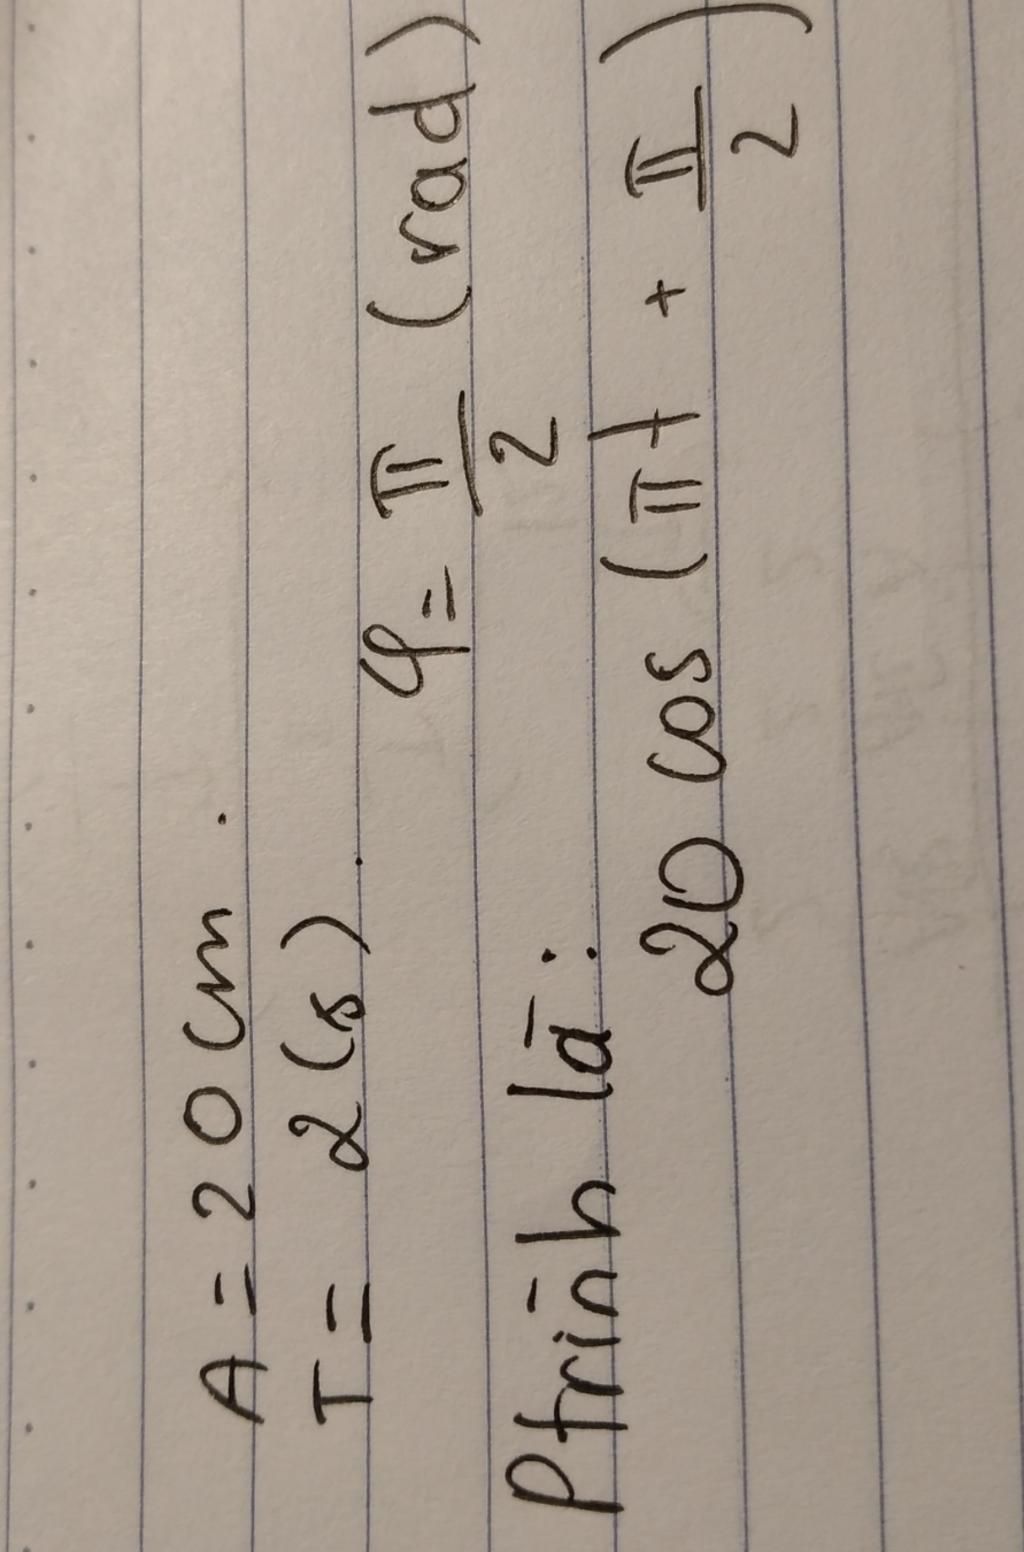 A = 20 cm.
T = 2 (s).
φ = π/2 (rad)
Ptrình là:
20 cos (πt + π/2)